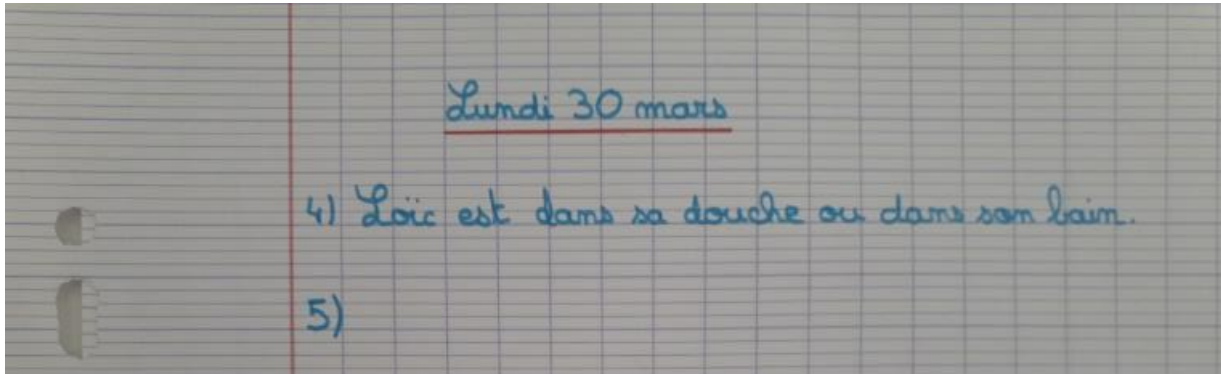 Lundi 30 mars
4) Loïc est dans sa douche ou dans son bain.
5)